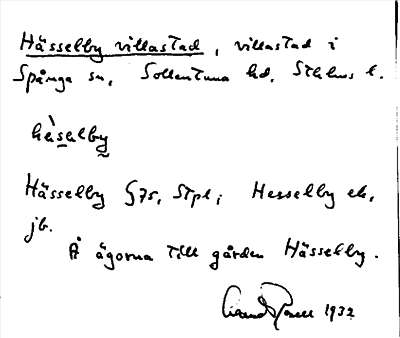 Hässelby villastad, villastad i
Spånga sn, Sollentuna hd, Sthlms l.
hàsəlby
Hässelby G75, Stpl; Hesselby ek,
jb.
På ägorna till gården Hässelby.
1932